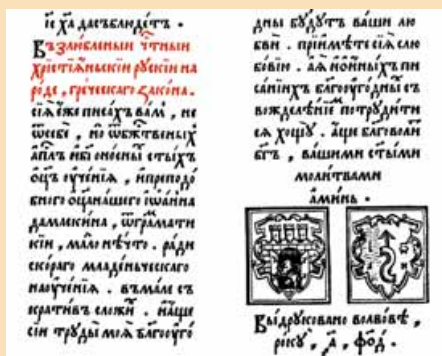 і҃с х҃а да съблюдетъ .
Възлюбленыи чтныи
хрїстїѧньскїи рускїи на
роде , греческаго закона .
сїѧ еже писахъ вамъ , не
ѿ себе , но ѿ бжтвеныхъ
апл҃ъ и бг҃оносныхъ ст҃ыхъ
ѻц҃ъ оученїѧ , и преподо
бнаго ѻц҃а нашего іѡанна
дамаскина , ѿ граматї
кїи , мало нѣчто . ради
скораго младенческаго
наоученїѧ . въмале съ
кративъ сложи . и аще
сїи труды моѧ благооуго
дны будутъ ваши лю
бви . прїимѣте сїѧ слю
бовїю . а ѧ и о иныхъ пи
санїихъ благооугодныхъ съ
вожделѣнїемъ потрудити
сѧ хощу . аще благоволи
бг҃ъ , вашими ст҃ыми
молитвами
аминь .
Выдруковано во лвовѣ ,
року , ҂а҃ф҃о҃д .